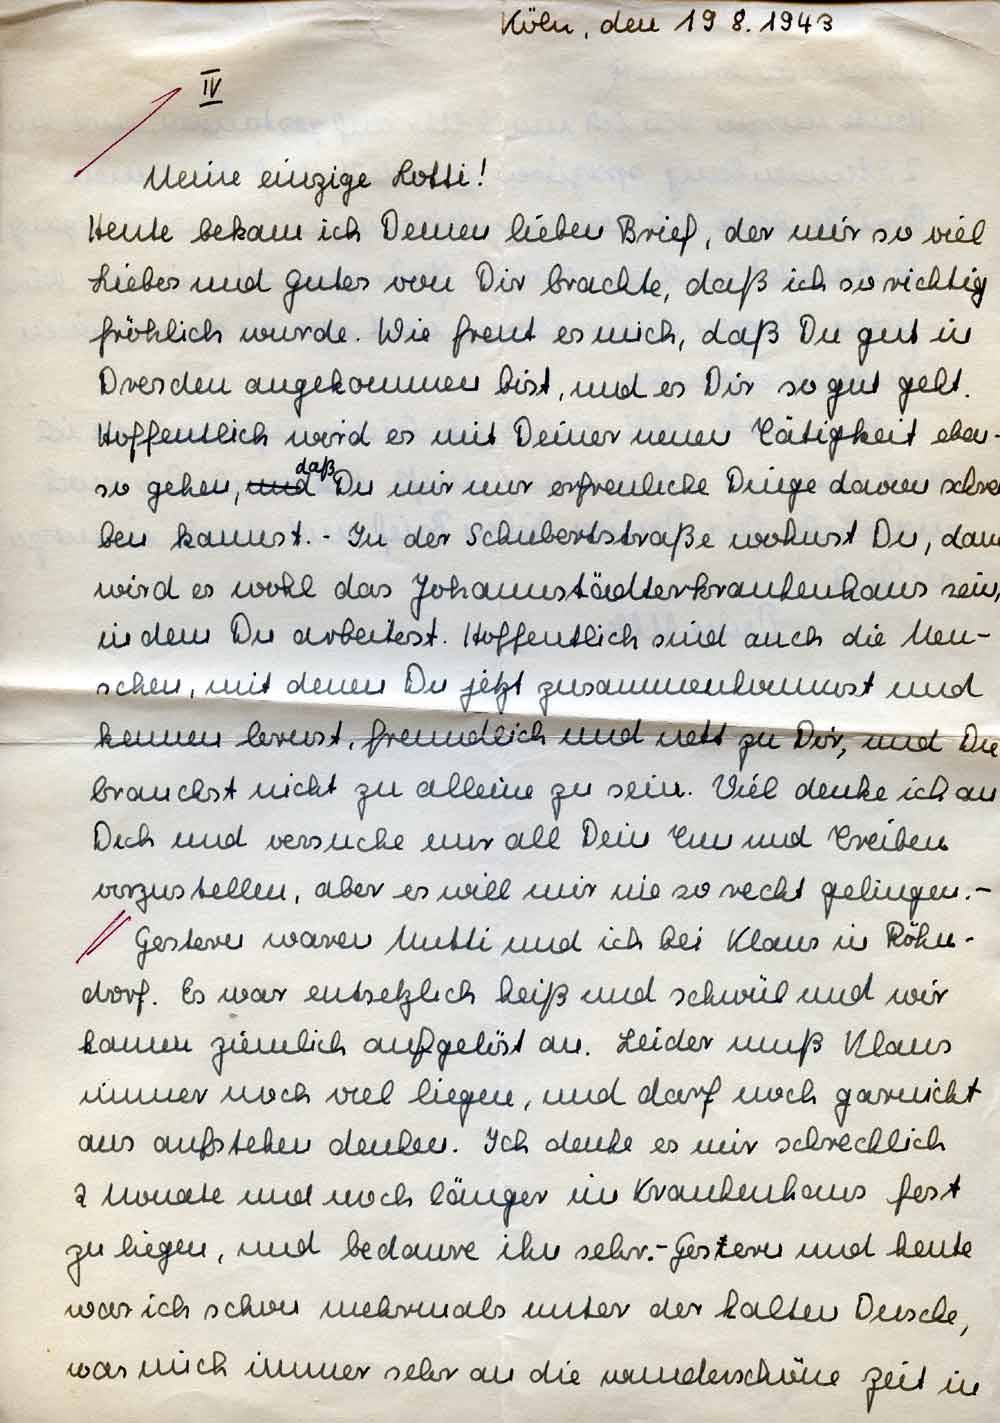 Köln, den 19 8. 1943
IV
Meine einzige Lotti!
Heute bekam ich Deinen lieben Brief, der mir so viel
Liebes und Gutes von Dir brachte, daß ich so richtig
fröhlich wurde. Wie freut es mich, daß Du gut in
Dresden angekommen bist, und es Dir so gut geht.
Hoffentlich wird es mit Deiner neuen Tätigkeit eben-
so gehen, und daß Du mir nur erfreuliche Dinge davon schrei
ben kannst. - In der Schubertstraße wohnst Du, dann
wird es wohl das Johannstädterkrankenhaus sein,
in dem Du arbeitest. Hoffentlich sind auch die Men-
schen, mit denen Du jetzt zusammenkommst und
kennen lernst, freundlich und nett zu Dir, und Du
brauchst nicht zu alleine zu sein. Viel denke ich an
Dich und versuche mir all Dein Tun und Treiben
vorzustellen, aber es will mir nie so recht gelingen. -
Gestern waren Mutti und ich bei Klaus in Röhn-
dorf. Es war entsetzlich heiß und schwül und wir
kamen ziemlich aufgelöst an. Leider muß Klaus
immer noch viel liegen, und darf noch garnicht
ans aufstehen denken. Ich denke es mir schrecklich
2 Monate und noch länger im Krankenhaus fest
zu liegen, und bedaure ihn sehr. - Gestern und heute
war ich schon mehrmals unter der kalten Dusche,
was mich immer sehr an die wunderschöne Zeit in